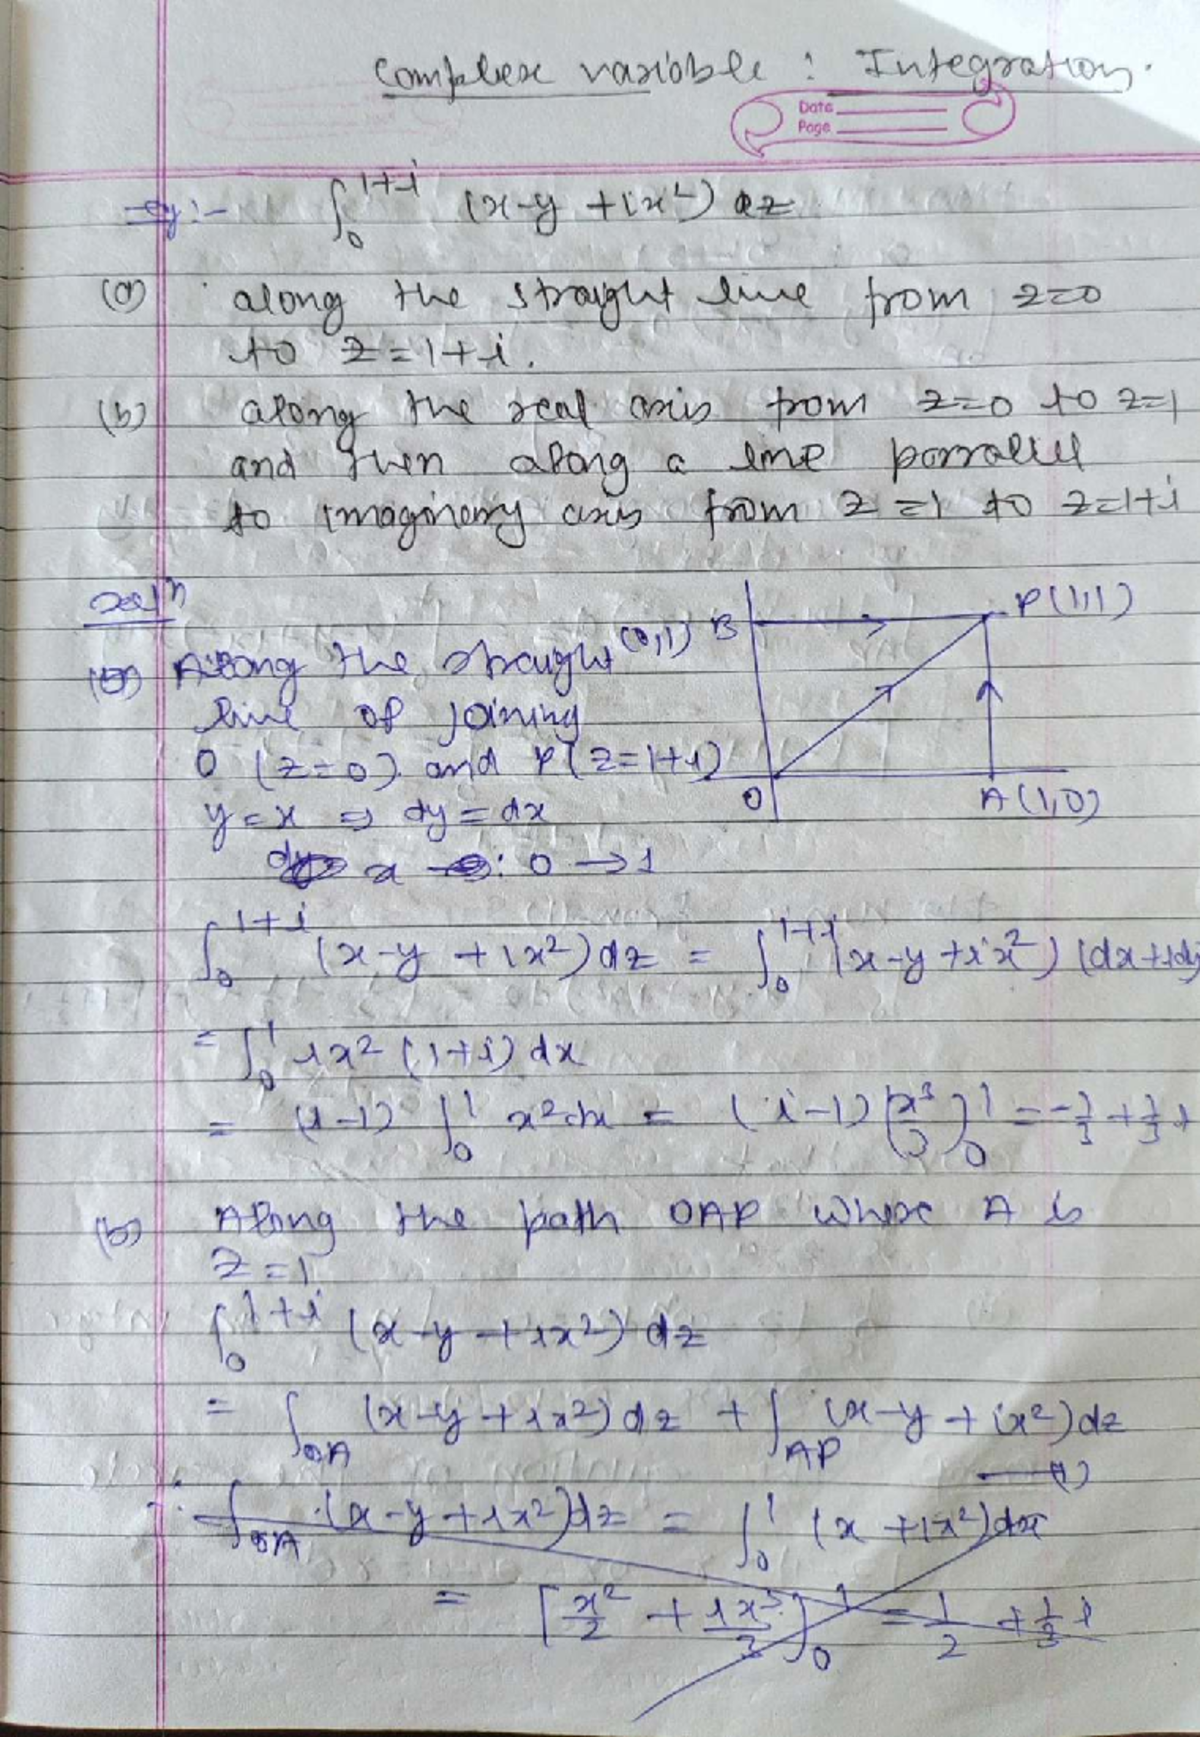 Complex variable : Integration.
Date
Page
eg :- ∫₀^{1+i} (x-y + ix²) dz
(a) along the straight line from z=0
to z = 1+i.
(b) along the real axis from z=0 to z=1
and then along a line parrallel
to imaginary axis from z=1 to z=1+i
Solⁿ
P(1,1)
(0,1) B
(a) Along the straight
line of joining
O (z=0) and P(z=1+i)
O A(1,0)
y=x ⇒ dy = dx
x : 0 → 1
∫₀^{1+i} (x-y + ix²) dz = ∫₀^{1+i} (x-y + ix²) (dx+idy
= ∫₀^1 ix² (1+i) dx
= (i-1) ∫₀^1 x² dx = (i-1) [x³/3]₀^1 = -1/3 + 1/3 i
(b) Along the path OAP where A is
z=1
∫₀^{1+i} (x-y+ix²) dz
= ∫_{OA} (x-y+ix²) dz + ∫_{AP} (x-y+ix²) dz
—(1)
∴ ∫_{OA} (x-y+ix²) dz = ∫₀^1 (x+ix²) dx
= [x²/2 + ix³/3]₀^1 = 1/2 + 1/3 i